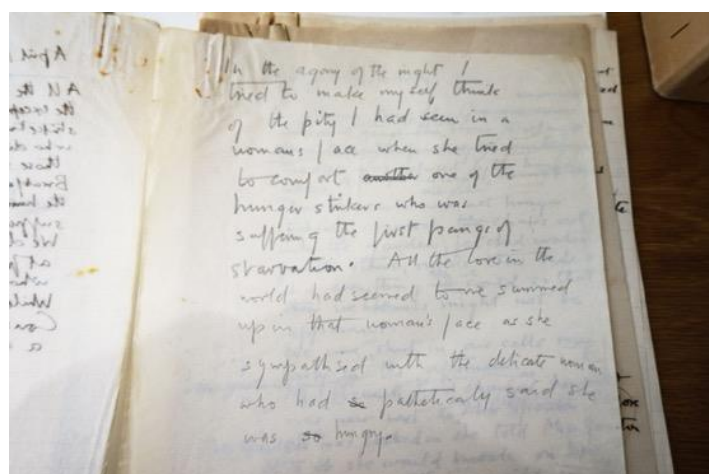 In the agony of the night I
tried to make myself think
of the pity I had seen in a
woman's face when she tried
to comfort another one of the
hunger strikers who was
suffering the first pangs of
starvation. All the love in the
world had seemed to me summed
up in that woman's face as she
sympathised with the delicate woman
who had so pathetically said she
was so hungry.